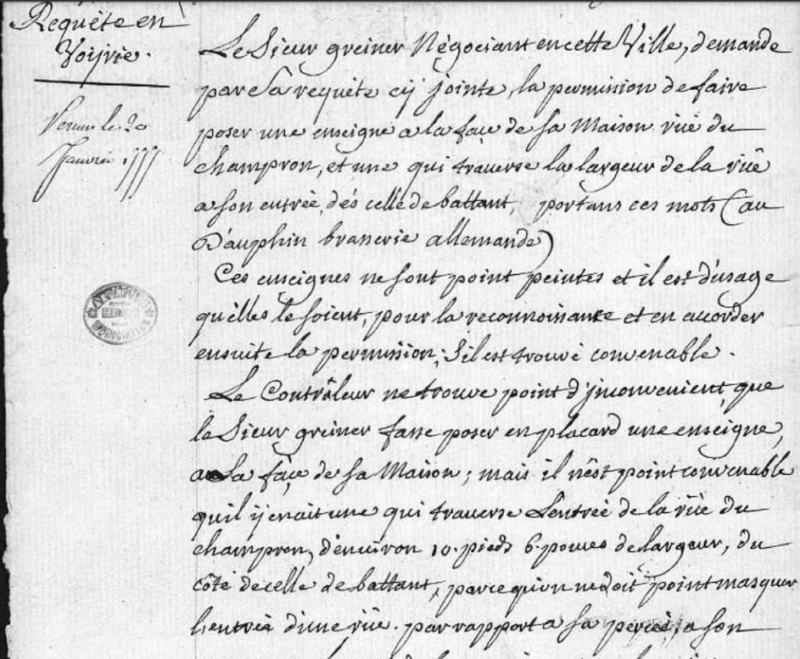 Requête en
Voijrie.
Venu le 20
Janvier 1777
Le Sieur greiner Négociant en cette Ville, demande
par Sa requête cy jointe, la permission de faire
poser une enseigne a la façe de sa Maison ruë du
champron, et une qui traverse la largeur de la ruë
a son entrée, dés celle de battant, portans ces mots (au
Dauphin braserie allemande)
Ces enseignes ne sont point peintes et il est d'usage
qu'elles le soient, pour la reconnoissance et en accorder
ensuite la permission, s'il est trouvé convenable.
Le Contrôleur ne trouve point d'jnconvenient, que
le Sieur greiner fasse poser en placard une enseigne,
a la façe de sa Maison; mais il n'est point convenable
qu'il ij en ait une qui traverse L'entrée de la ruë du
champron, d'environ 10. pieds 6. pouces de largeur, du
côté de celle de battant, parce qu'on ne doit point masquer
l'entrée d'une ruë. par rapport a sa percée, a son